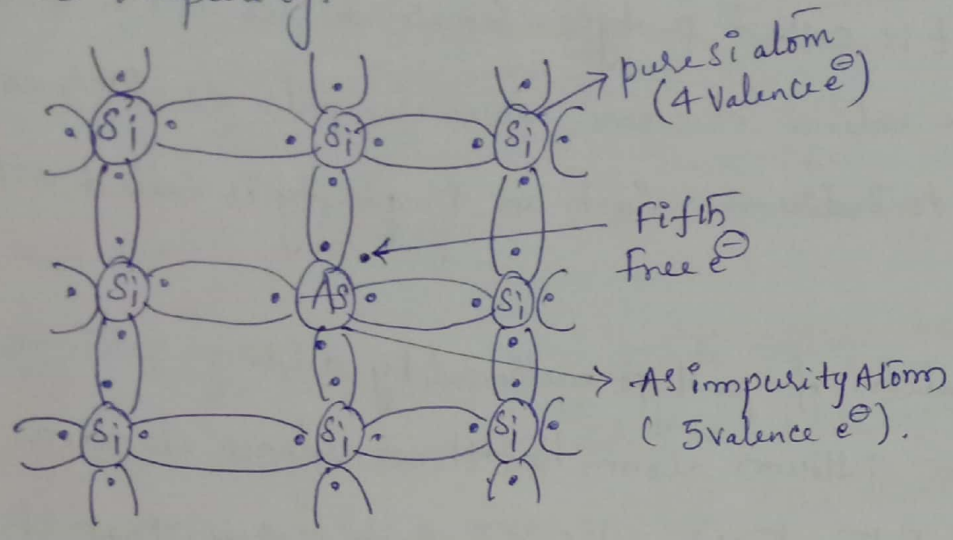 impurity.
Si Si Si
pure si atom
(4 valence e⊖)
Fifth
free e⊖
Si As Si
As impurity Atom
(5 valence e⊖).
Si Si Si